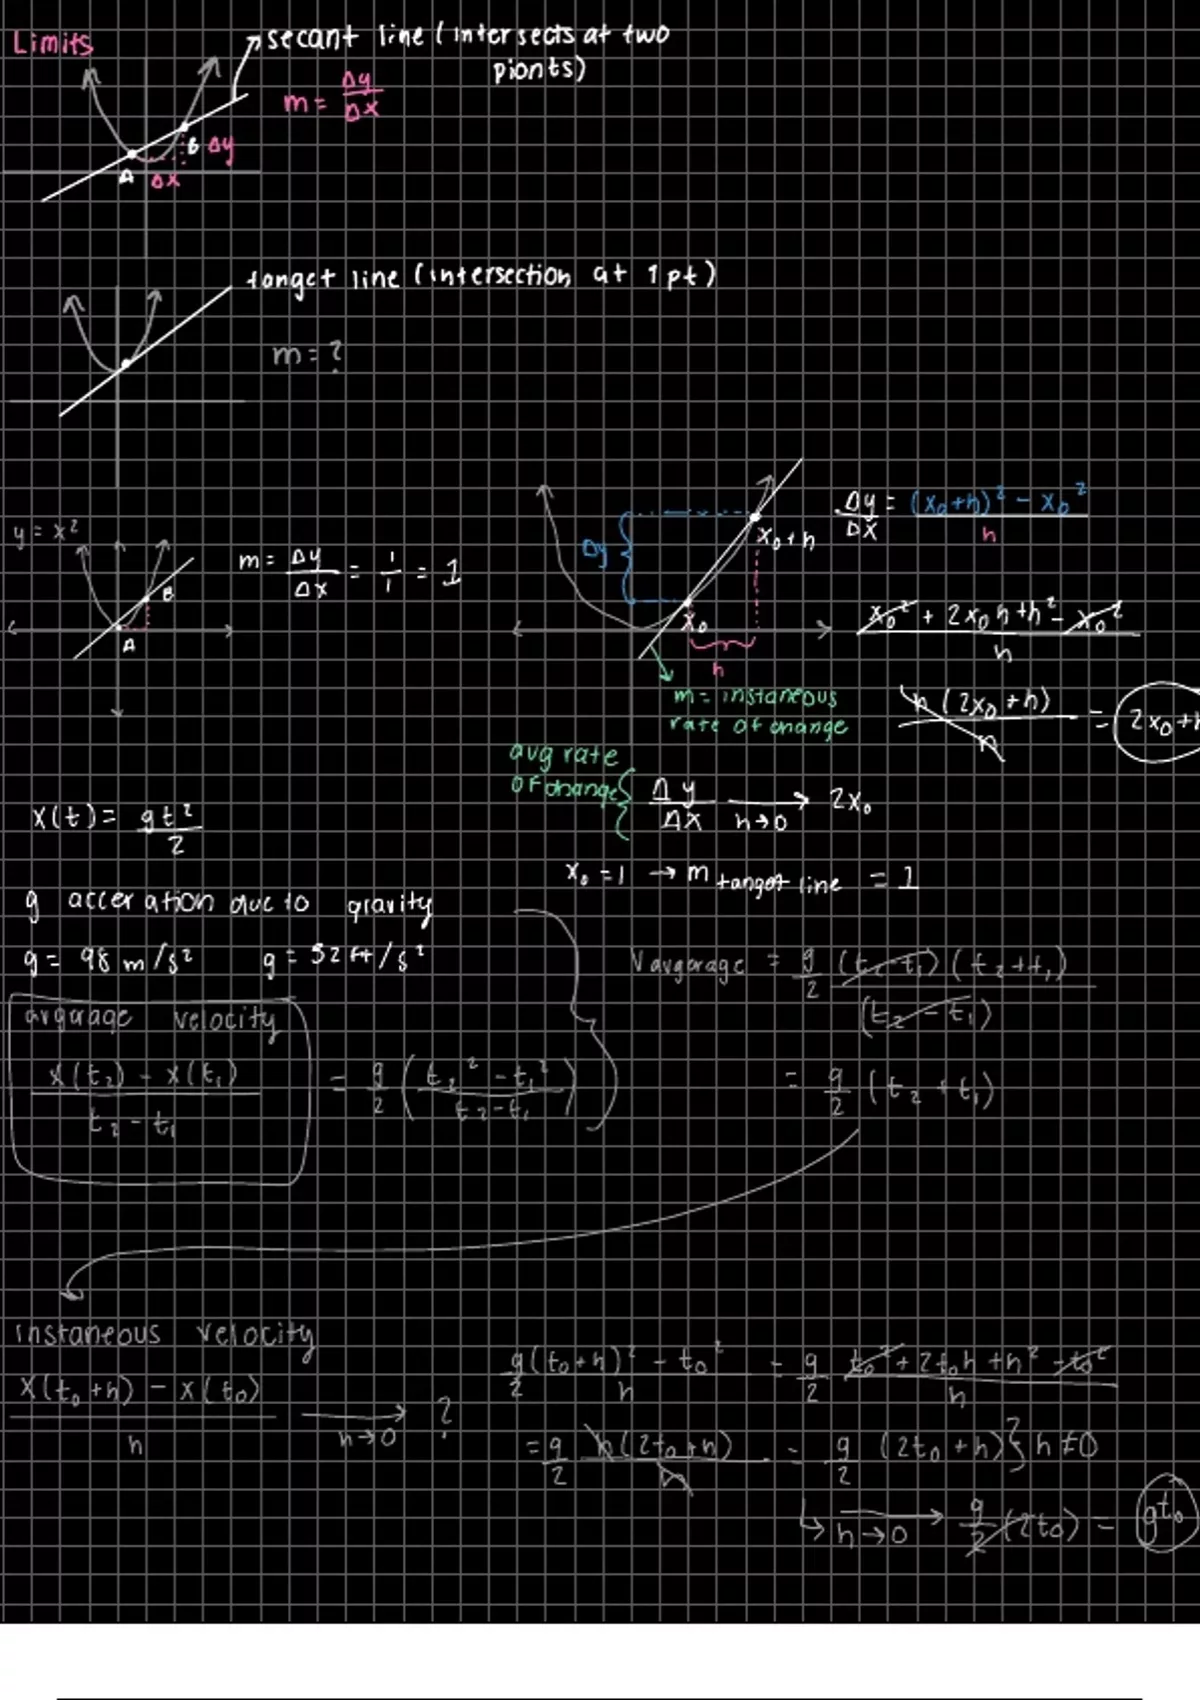 Limits
secant line (intersects at two
pionts)
m = Δy/Δx
B Δy
A Δx
tanget line (intersection at 1 pt)
m = ?
y = x²
m = Δy/Δx = 1/1 = 1
B
A
Δy
x₀+h
x₀
h
m = instaneous
rate of change
Δy/Δx = (x₀+h)² - x₀² / h
x₀² + 2x₀h + h² - x₀² / h
h(2x₀+h) / h = 2x₀+h
avg rate
of change { Δy/Δx → h→0 2x₀
x₀ = 1 → m tanget line = 1
x(t) = gt²/2
g acceration due to gravity
g = 98 m/s² g = 32 ft/s²
avgerage velocity
x(t₂) - x(t₁) / t₂ - t₁ = g/2 (t₂² - t₁² / t₂ - t₁)
Vavgerage = g/2 (t₂-t₁)(t₂+t₁) / (t₂-t₁)
= g/2 (t₂+t₁)
instaneous velocity
x(t₀+h) - x(t₀) / h → h→0 ?
g/2 (t₀+h)² - t₀² / h = g/2 t₀² + 2t₀h + h² - t₀² / h
= g/2 h(2t₀+h) / h = g/2 (2t₀+h) } h≠0
↳ h→0 → g/2 (2t₀) = gt₀